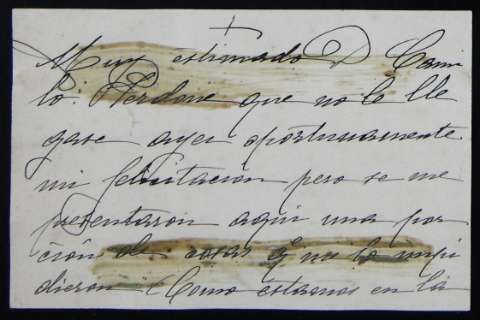 +
Muy estimado D Cami
lo: Perdone que no le lle
gase ayer oportunamente
mi felicitacion pero se me
presentaron aqui una por
ción de cosas q me lo impi
dieron Como estamos en la